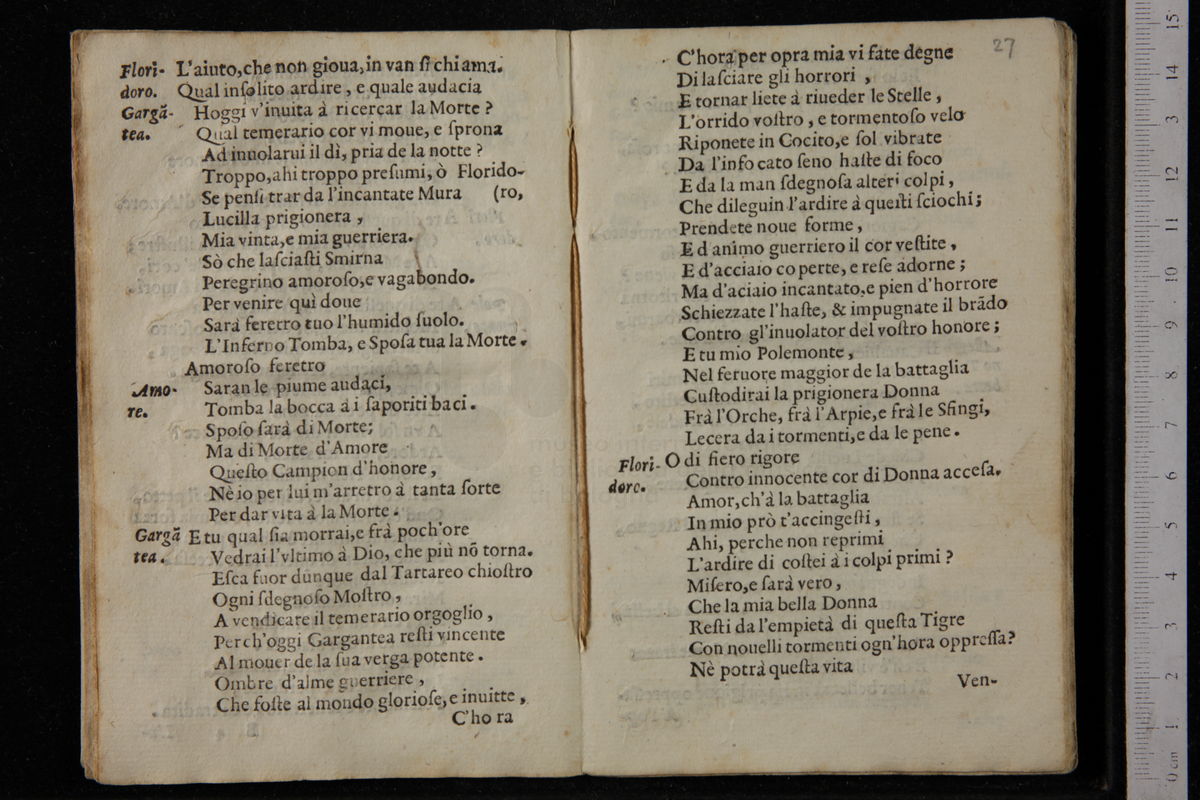 Flori- L'aiuto,che non gioua,in van ſi chiama.
doro. Qual inſolito ardire , e quale audacia
Gargã- Hoggi v'inuita à ricercar la Morte ?
tea. Qual temerario cor vi moue, e ſprona
Ad inuolarui il dì, pria de la notte ?
Troppo,ahi troppo preſumi, ò Florido-
Se penſi trar da l'incantate Mura (ro,
Lucilla prigionera ,
Mia vinta,e mia guerriera.
Sò che laſciaſti Smirna
Peregrino amoroſo,e vagabondo.
Per venire quì doue
Sarà feretro tuo l'humido ſuolo.
L'Inferno Tomba, e Spoſa tua la Morte.
Amoroſo feretro
Amo- Saran le piume audaci,
re. Tomba la bocca à i ſaporiti baci.
Spoſo ſarà di Morte;
Ma di Morte d'Amore
Queſto Campion d'honore,
Nè io per lui m'arretro à tanta ſorte
Per dar vita à la Morte.
Gargã E tu qual ſia morrai,e frà poch'ore
tea. Vedrai l'vltimo à Dio, che più nõ torna.
Eſca fuor dunque dal Tartareo chioſtro
Ogni ſdegnoſo Moſtro,
A vendicare il temerario orgoglio,
Perch'oggi Gargantea reſti vincente
Al mouer de la ſua verga potente.
Ombre d'alme guerriere,
Che foſte al mondo glorioſe,e inuitte,
C'ho ra
27
C'hora per opra mia vi fate degne
Di laſciare gli horrori ,
E tornar liete à riueder le Stelle ,
L'orrido voſtro , e tormentoſo velo
Riponete in Cocito,e ſol vibrate
Da l'infocato ſeno haſte di foco
E da la man ſdegnoſa alteri colpi ,
Che dileguin l'ardire à queſti ſciochi;
Prendete noue forme ,
E d'animo guerriero il cor veſtite ,
E d'acciaio coperte, e reſe adorne ;
Ma d'aciaio incantato,e pien d'horrore
Schiezzate l'haſte, & impugnate il brãdo
Contro gl'inuolator del voſtro honore ;
E tu mio Polemonte ,
Nel feruore maggior de la battaglia
Cuſtodirai la prigionera Donna
Frà l'Orche, frà l'Arpie,e frà le Sfingi,
Lecera da i tormenti,e da le pene.
Flori- O di fiero rigore
doro. Contro innocente cor di Donna acceſa.
Amor,ch'à la battaglia
In mio prò t'accingeſti ,
Ahi, perche non reprimi
L'ardire di coſtei à i colpi primi ?
Miſero,e ſarà vero ,
Che la mia bella Donna
Reſti da l'empietà di queſta Tigre
Con nouelli tormenti ogn'hora oppreſſa?
Nè potrà queſta vita
Ven-